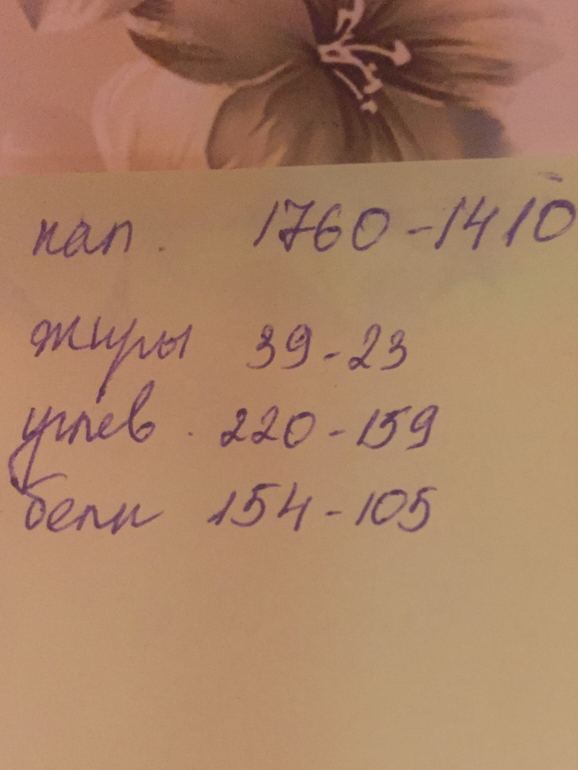 кал. 1760-1410
жиры 39-23
углев. 220-159
белк 154-105